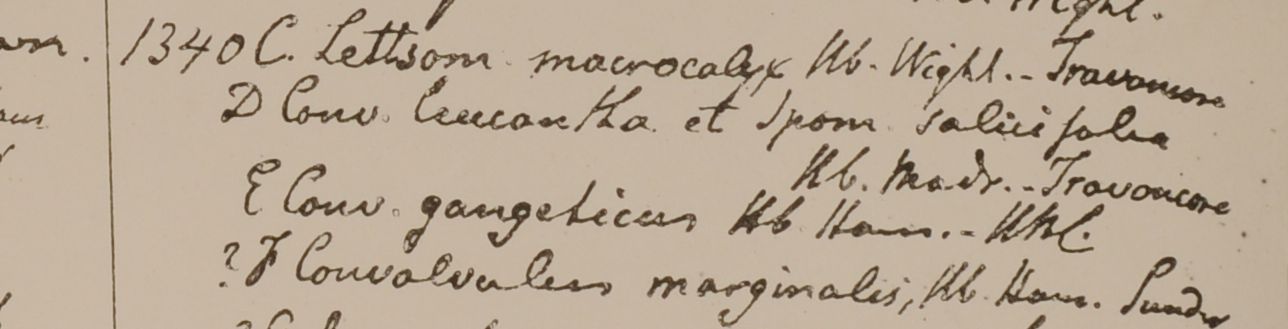 Wight.
1340 C. Lettsom macrocalyx Hb. Wight. - Travancore
D Conv. leucantha et Ipom salicifolia
Hb. Madr. - Travancore
E Conv. gangeticus Hb Ham. -
? F Convolvulus marginalis, Hb Ham.